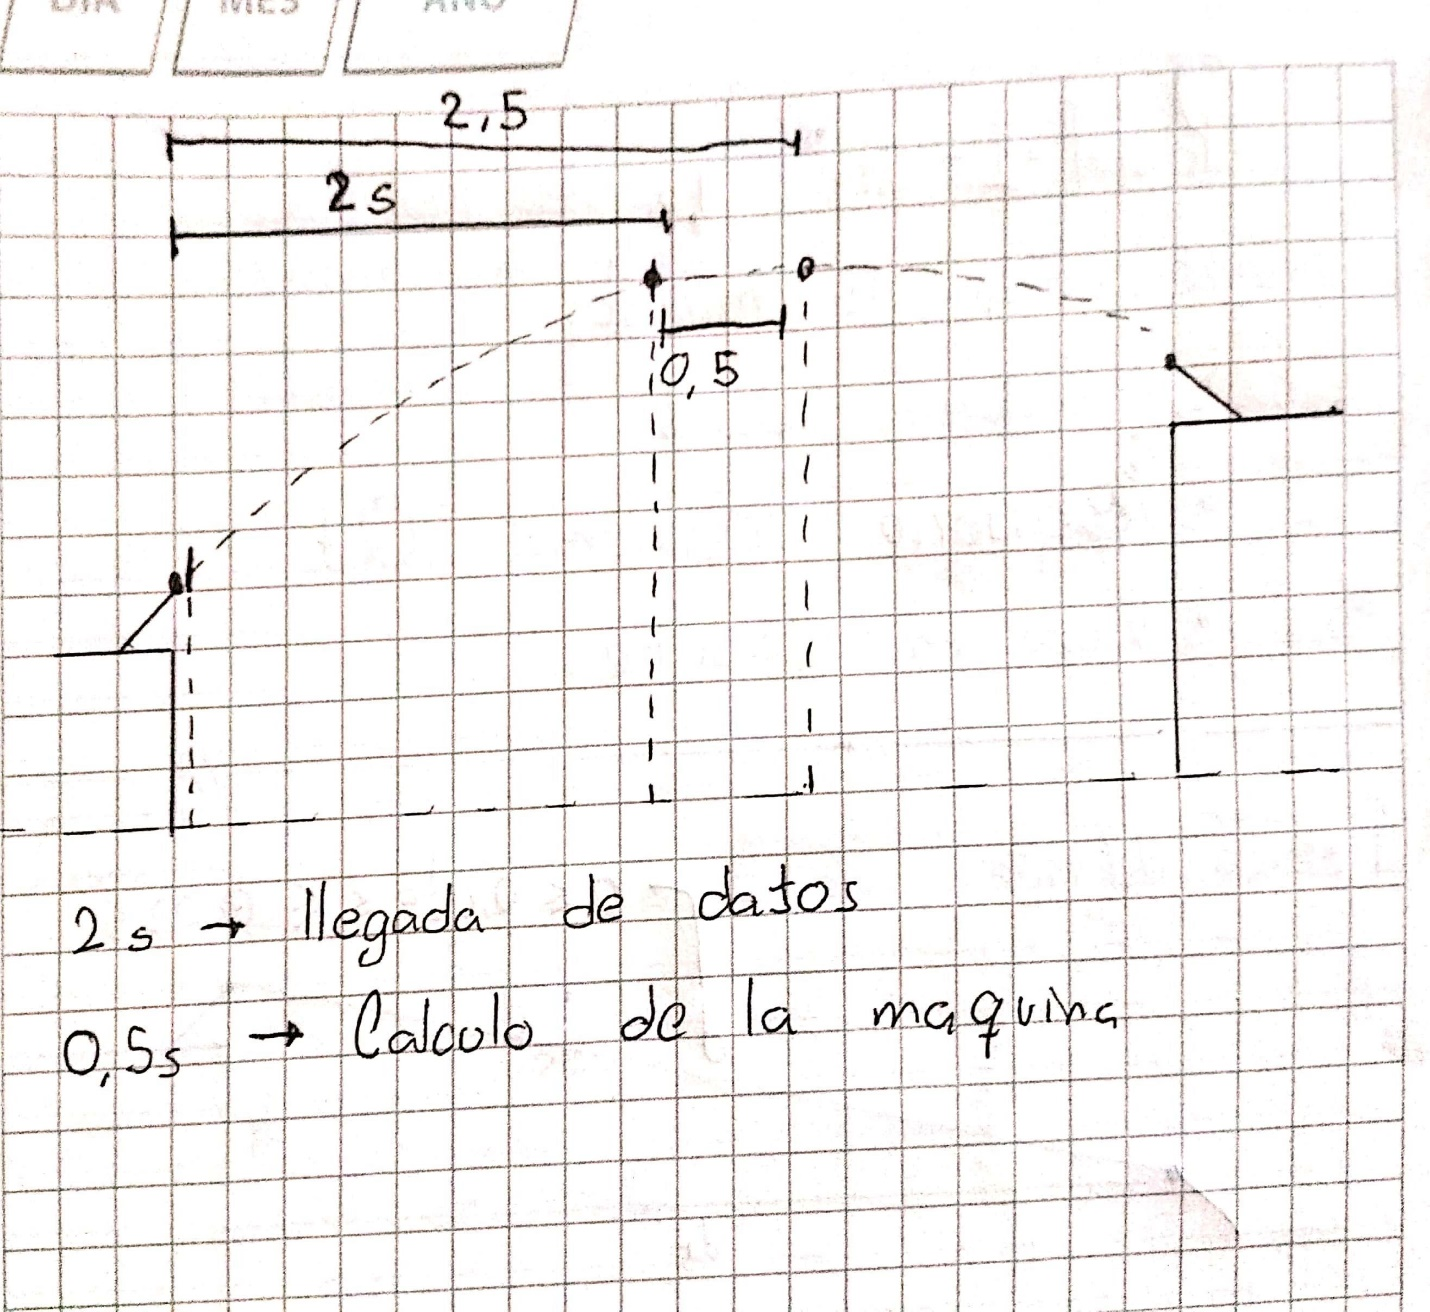 DIA MES AÑO
2,5
2s
0,5
2s → llegada de datos
0,5s → Calculo de la maquina